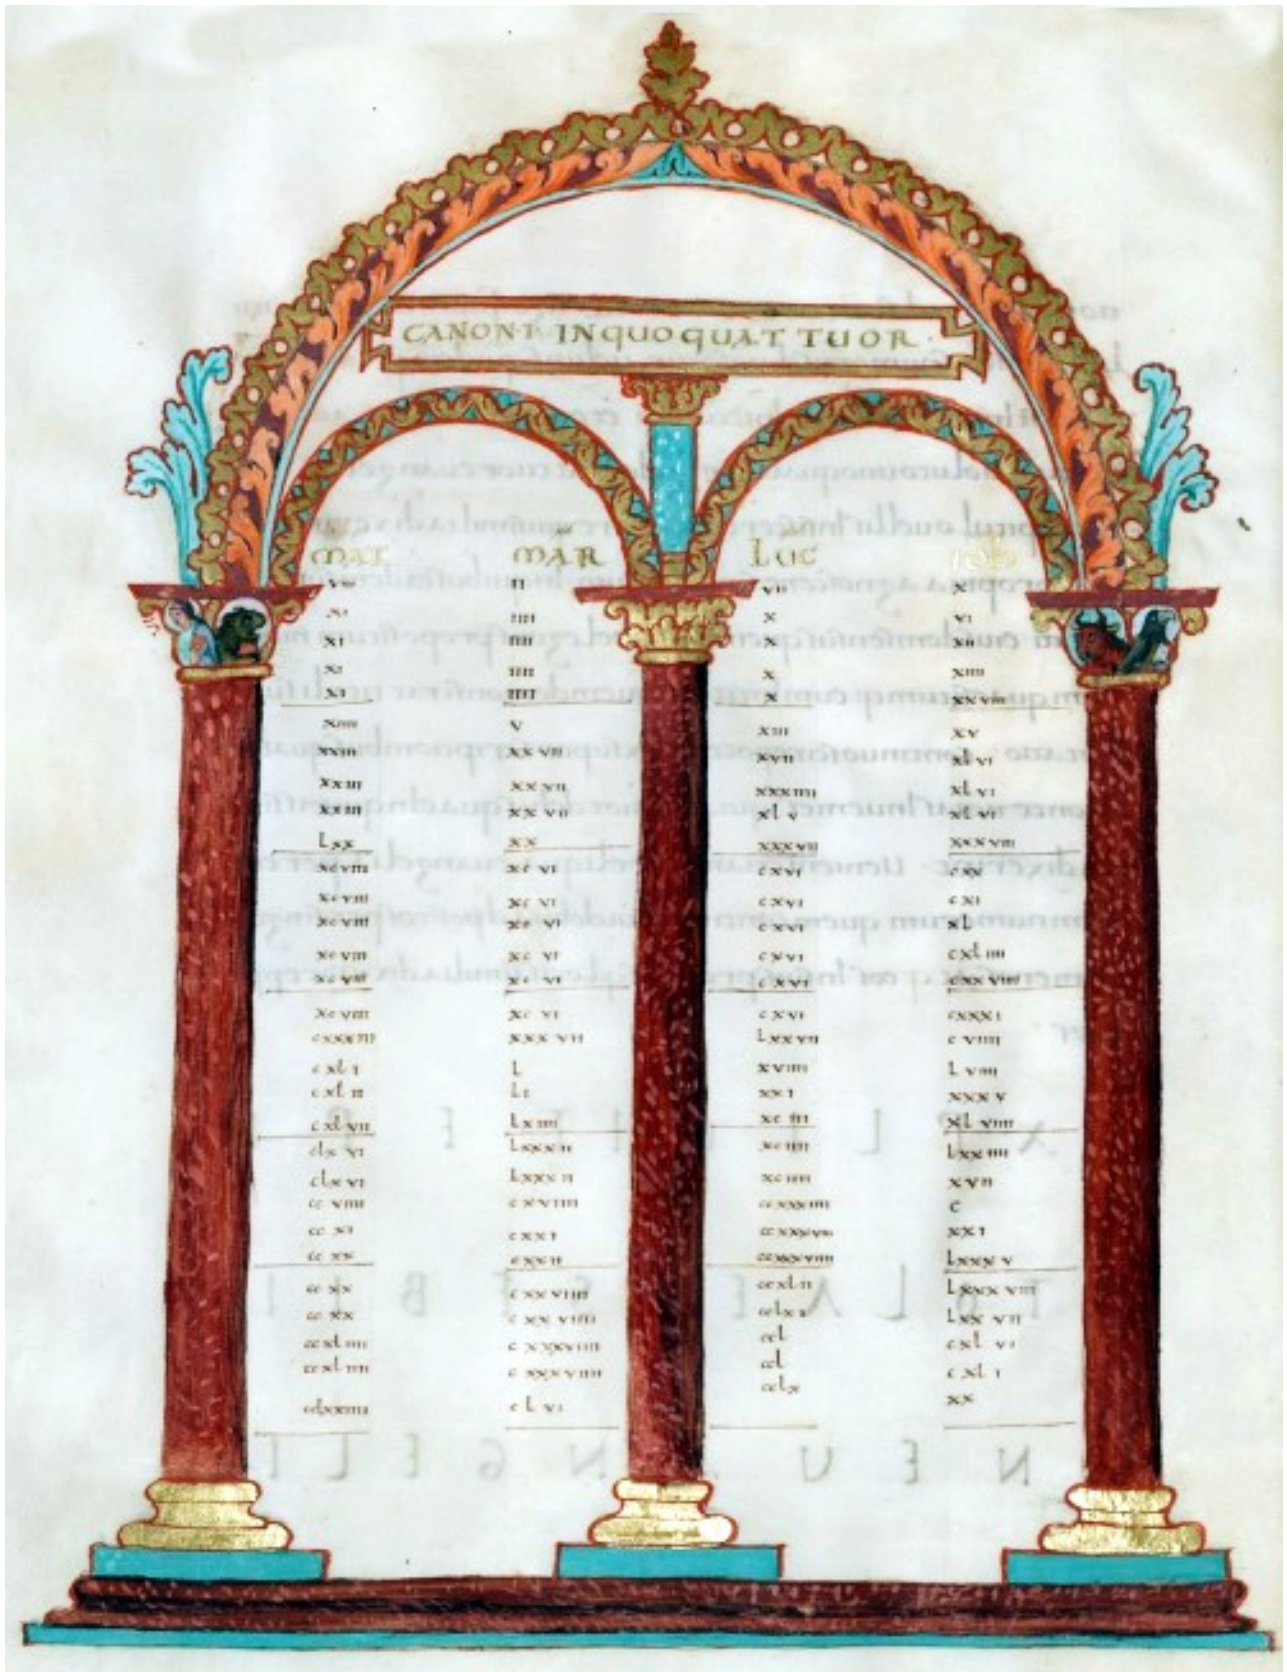 CANON·I· IN QUO QUATTUOR
MAT MAR LUC IOH
ii vii x
xi iiii x vi
xi iiii x xii
xi iiii x xiiii
xi iiii x xxviii
xiiii v xiii xv
xxvii xvii xlvi
xxiii xxvii xxxiiii xlvi
xxiii xxvii xlv xlvi
Lxx xx xxxvii xxxviii
xcviii xcvi cxvi cxx
xcviii xcvi cxvi cxi
xcviii xcvi cxvi xL
xcviii xcvi cxvi cxliiii
xcviii xcvi cxvi cxxviiii
xcviii xcvi cxvi cxxxi
cxxxiii xxxvii Lxxvii cviiii
cxli L xviiii Lviiii
cxlii Li xxi xxxv
cxlvii Lxiiii xciii xLviiii
clxvi Lxxxii xciiii Lxxiiii
clxvi Lxxxii xciiii xvii
ccviiii cxviiii ccxxxiiii c
ccxi cxxi ccxxxviii xxi
ccxx cxxii ccxxxviiii Lxxxv
ccxx cxxviiii ccxlii Lxxxviii
ccxx cxxviiii cclxi Lxxvii
ccxliiii cxxxviiii ccl cxlvi
ccxliiii cxxxviiii ccl cxli
cclxxiiii clvi cclx xx